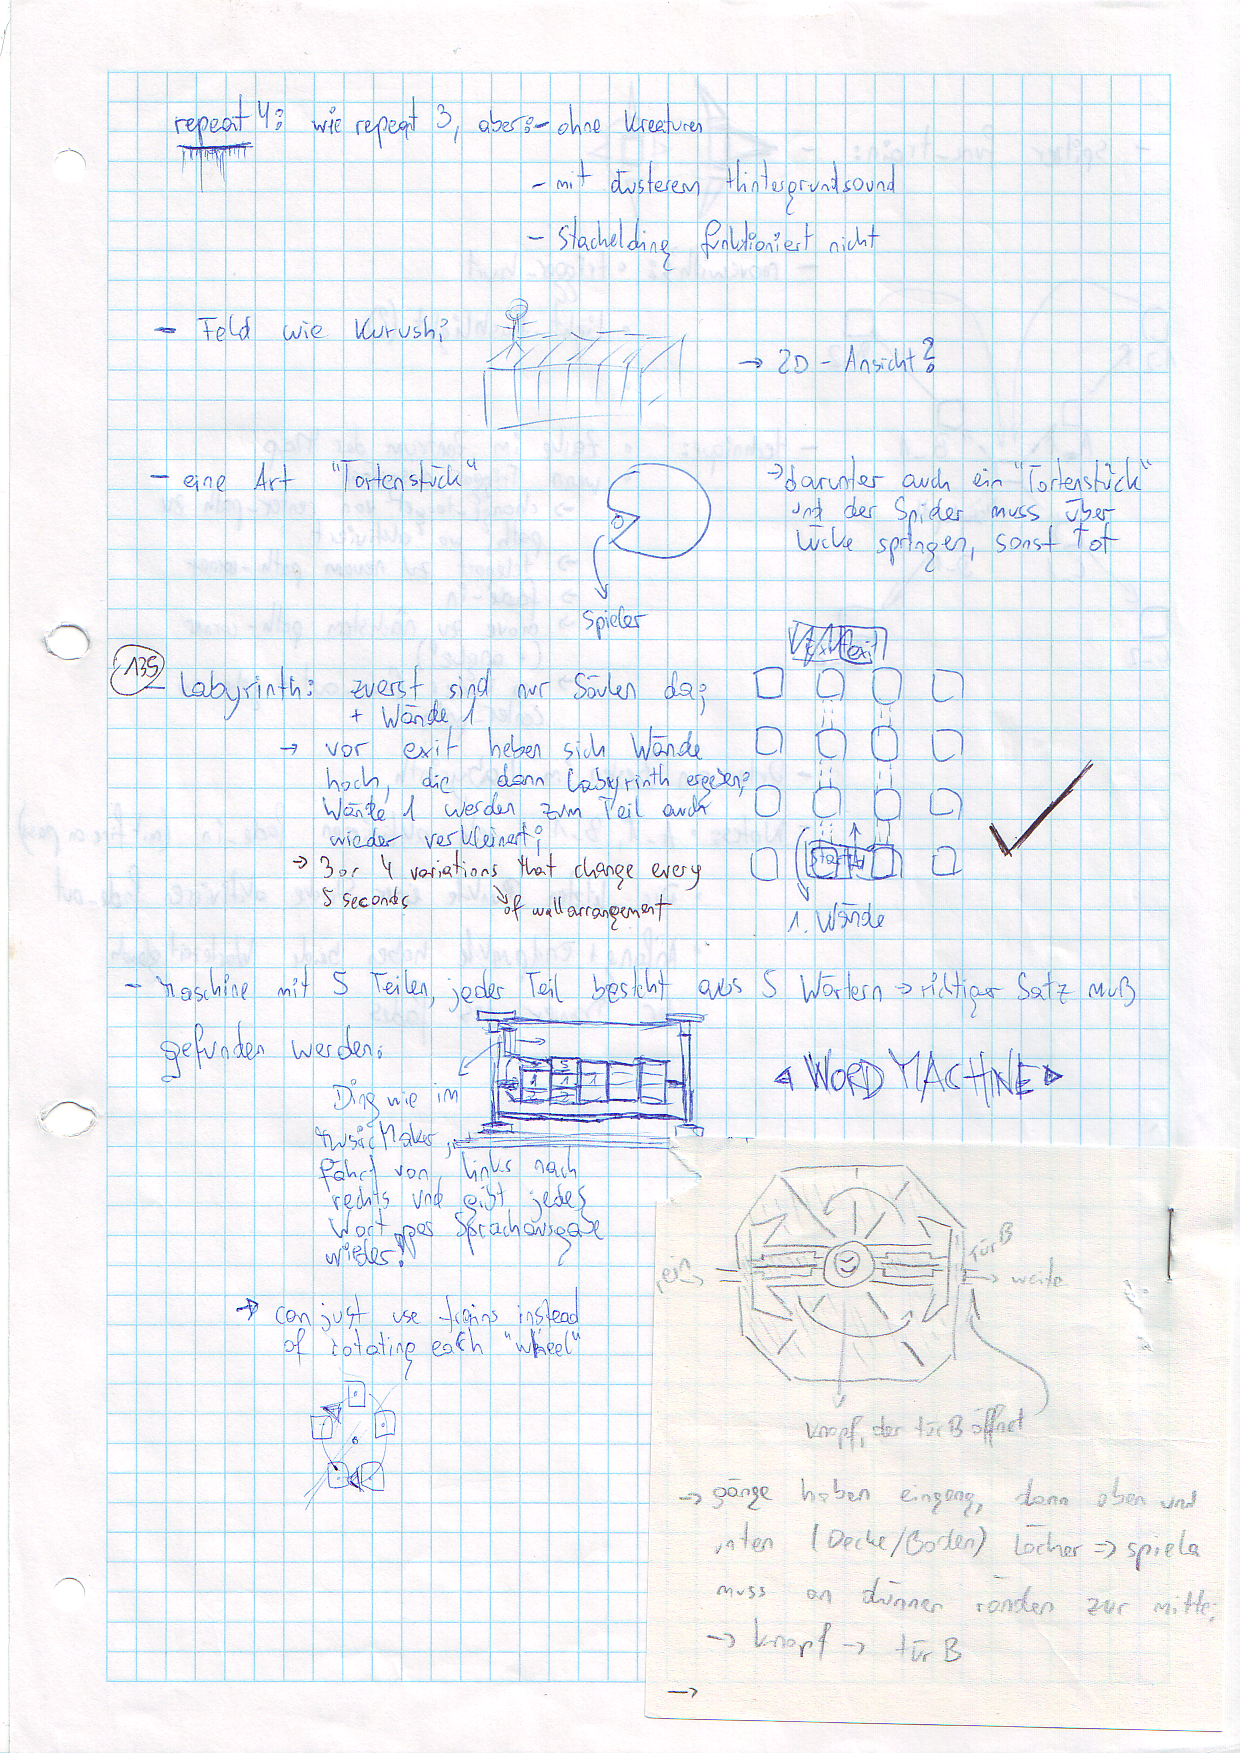 repeat 4: wie repeat 3, aber: - ohne Kreaturen
- mit düsterem Hintergrundsound
- Stachelding funktioniert nicht
- Feld wie Kurushi
→ 2D - Ansicht?
- eine Art "Tortenstück"
→ darunter auch ein "Tortenstück"
und der Spieler muss über
Lücke springen, sonst tot
Spieler
135
exit
- Labyrinth: zuerst sind nur Säulen da;
+ Wände 1
→ vor exit heben sich Wände
hoch, die dann Labyrinth ergeben;
Wände 1 werden zum Teil auch
wieder verkleinert;
→ 3 or 4 variations that change every
5 seconds
of wall arrangement
Start
1. Wände
- Maschine mit 5 Teilen, jeder Teil besteht aus 5 Wörtern → richtiger Satz muß
gefunden werden:
5
1 1 1
2 2
Ding wie im
Music Maker,
fährt von links nach
rechts und gibt jedes
Wort per Sprachausgabe
wieder!
WORD MACHINE
→ can just use trains instead
of rotating each "wheel"
tür B
ein
→ weite
Knopf, der tür B öffnet
→ gänge haben eingang, dann oben und
unten (Decke/Boden) Löcher → spieler
muss an dünnen ränden zur mitte;
→ knopf → tür B
→